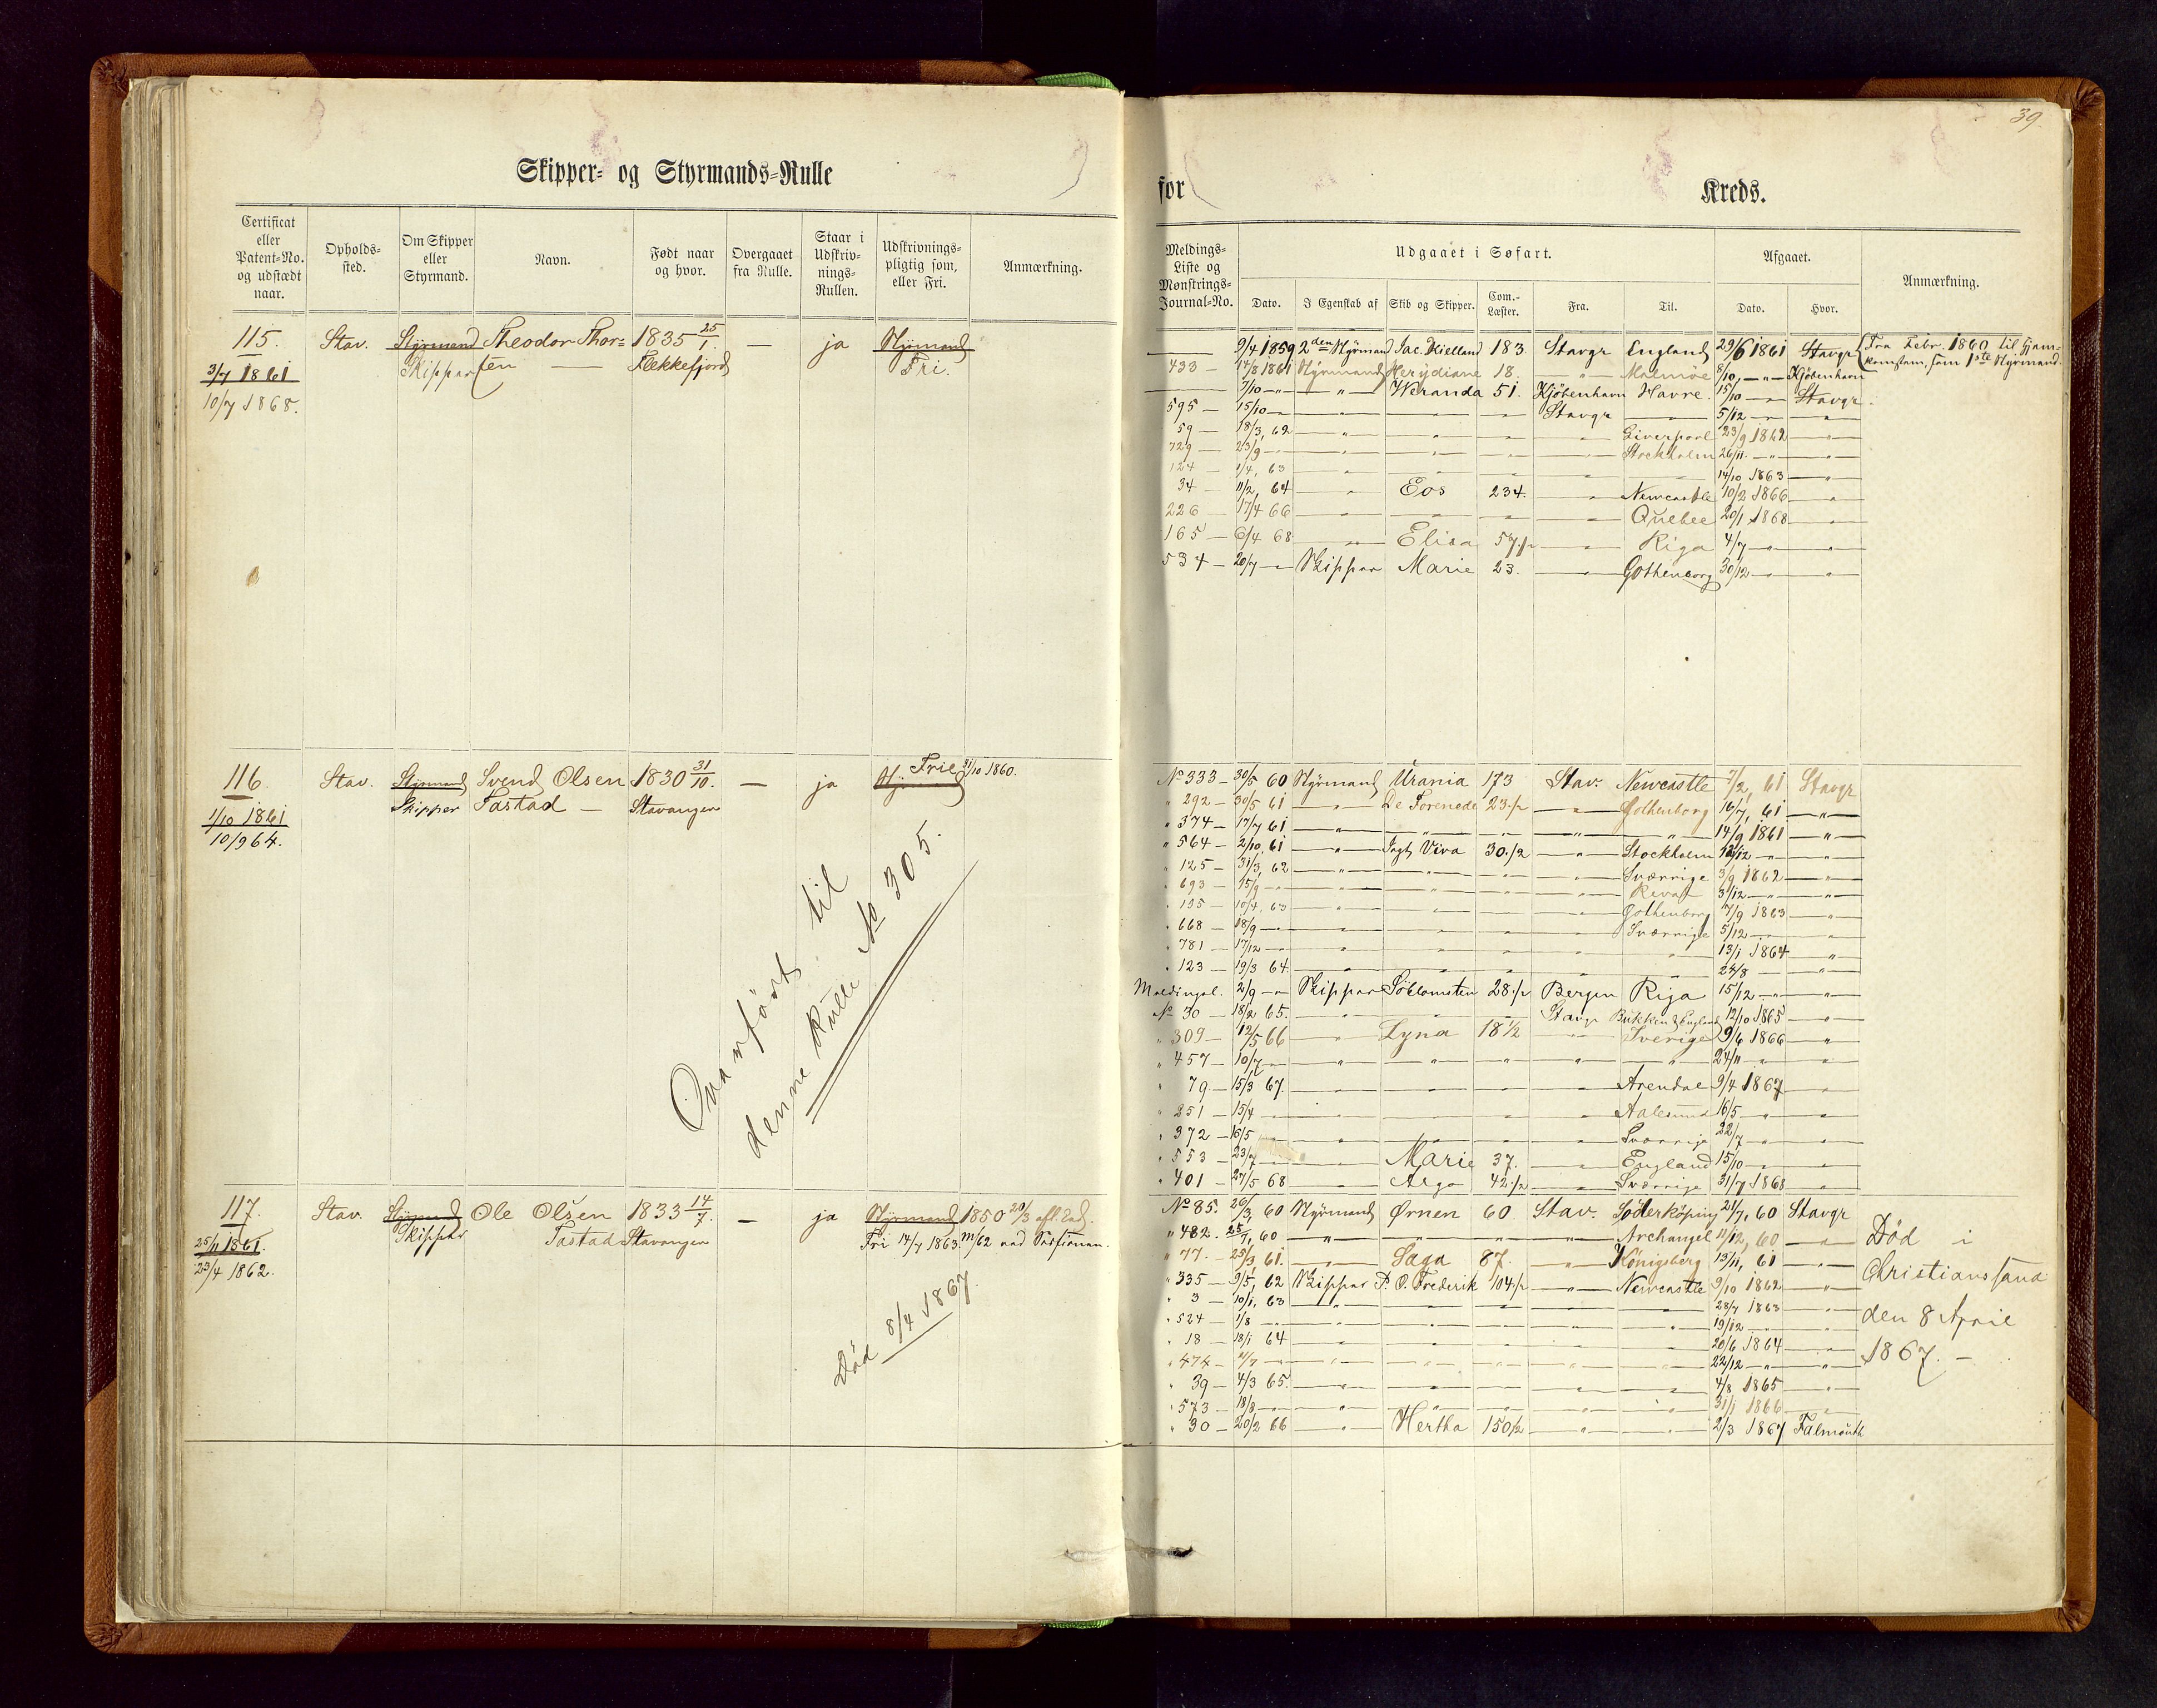 39.
Skipper- og Styrmands-Rulle
for
Kreds.
Certificat eller Patent-No. og udstædt naar.
Opholds-sted.
Om Skipper eller Styrmand.
Navn.
Født naar og hvor.
Overgaaet fra Rulle.
Staar i Udskriv-nings-Rullen.
Udskrivnings-pligtig som, eller Fri.
Anmærkning.
Meldings-Liste og Mønstrings-Journal-No.
Udgaaet i Søfart.
Afgaaet.
Anmærkning.
Dato.
I Egenskab af
Skib og Skipper.
Com.-Læster.
Fra.
Til.
Dato.
Hvor.
115. Stav. Styrmand Theodor Thor= 1835 25/1. — ja Styrmand
3/7 1861 Skipper sen — Flekkefjord Fri.
10/7 1868.
— 9/4 1859 2den Styrmand Jac. Kielland 183. Stavgr England 29/6 1861 Stavgr Fra Febr. 1860 til Hjem-
433 — 17/8 1861 Styrmand Merydiane 18. — " — Malmøe 8/10 — " — Kjøbenhavn komsten, som 1ste Styrmand.
7/10 — " — " — Weranda 51. Kjöbenhavn Havre. 15/10 — Stavgr.
595 — 15/10 — " — Stavgr — 5/12 — "
59 — 18/3, 62 — " — Liverpool 23/9 1862 — " —
729 — 23/9 — " — Stockholm 26/11. — " —
124 — 1/4, 63 — " — 14/10 1863 — " —
34 — 11/2, 64 — " — Eos 234. — " — Newcastle 10/2 1866 — "
226 — 17/4 66 — " — Quebec 20/1 1868 — "
165 — 6/4 68 — " — Elisa 57 1/2 — " — Riga 4/7 — "
534 — 20/7 — Skipper Marie 23. — " — Gothenborg 30/12 — "
116. Stav. Styrmand Svend Olsen 1830 31/10. — ja Styrmand Frie 31/10 1860.
1/10 1861 Skipper Tastad — Stavanger
10/9 64.
Overført til
denne Rulle No 305.
No 333 — 30/5 60 Styrmand Urania 173 Stav. Newcastle 7/2, 61 Stavgr
" 292 — 30/5 61 — " — De Forenede 23 1/2 — " — Gothenborg 16/7, 61 — " —
" 374 — 17/7 61 — " — 14/9 1861 — " —
" 564 — 2/10, 61 — " — Jagt Viva 30 1/2 — " — Stockholm 12/12 — " —
" 125 — 31/3, 62 — " — Sverrige 3/9 1862 — " —
" 693 — 15/9 — " — Reval 3/12 — " —
" 195 — 10/4, 63 — " — Gothenborg 7/9 1863 — " —
" 668 — 18/9 — " — Sverrige 5/12 — " —
" 781 — 17/12 — " — 13/1 1864 — " —
" 123 — 19/3 64 — " — 24/8 — " —
Meldingsl. 2/9 — Skipper Söblomsten 28 1/2 Bergen Riga 15/12 — " —
No 30 — 18/2 65. — " — Stavgr Bukken & England 12/10 1865 — " —
" 309 — 12/5 66 — " — Lyna 18 1/2 — " — Sverige 9/6 1866 — "
" 457 — 10/7 — " — 24/11 — "
" 79 — 15/3 67. — " — Arendal 9/4 1867 — "
" 251 — 15/4 — " — Aalesund 16/5 — "
" 372 — 16/5 — " — Sverrige 22/7 — "
" 553 — 23/7 — " — Marie 37. — " — England 15/10 — "
" 401 — 27/5 68 — " — Argo 42 1/2 — " — Sverrige 31/7 1868 — "
117. Stav. Styrmand Ole Olsen 1833 14/7. — ja Styrmand 1850 20/3
25/11 1861. Skipper Tastad Stavanger Fri 14/7 1863.
23/4 1862.
Död 8/4 1867.
No 85. 26/3, 60 Styrmand Ørnen 60 Stav. Söderköping 21/7, 60 Stavgr
" 482. 25/7, 60 — " — Archangel 11/12, 60 — "
" 77. — 25/3, 61. — " — Saga 87. — " — Königsberg 13/11, 61 — " —
" 335 — 9/5, 62 Skipper P. O. Frederik 104 1/2 — " — Newcastle 9/10 1862 — "
" 3 — 10/1, 63 — " — 28/7 1863 — "
" 524 — 1/8 — " — 19/12 — "
" 18 — 18/1 64 — " — 20/6 1864 — "
" 474 — 11/7 — " — 22/12 — " —
" 39 — 4/3 65. — " — 4/8 1865 — "
" 573 — 18/8 — " — 31/1 1866 — "
" 30 — 20/2 66 — " — Hertha 150 1/2 — " — 2/3 1867 Falmouth
Död i
Christianssand
den 8 April
1867. —